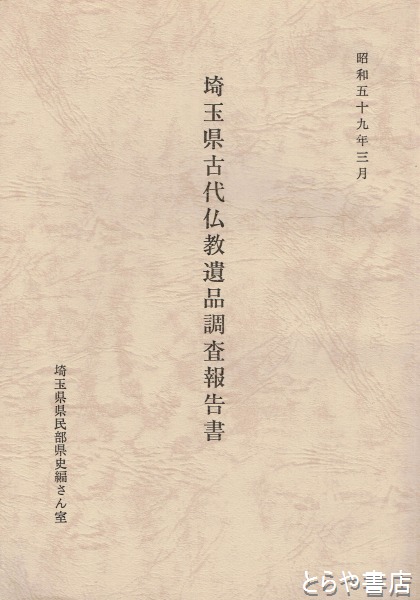 昭和五十九年三月
埼玉県古代仏教遺品調査報告書
埼玉県県民部県史編さん室
とらや書店